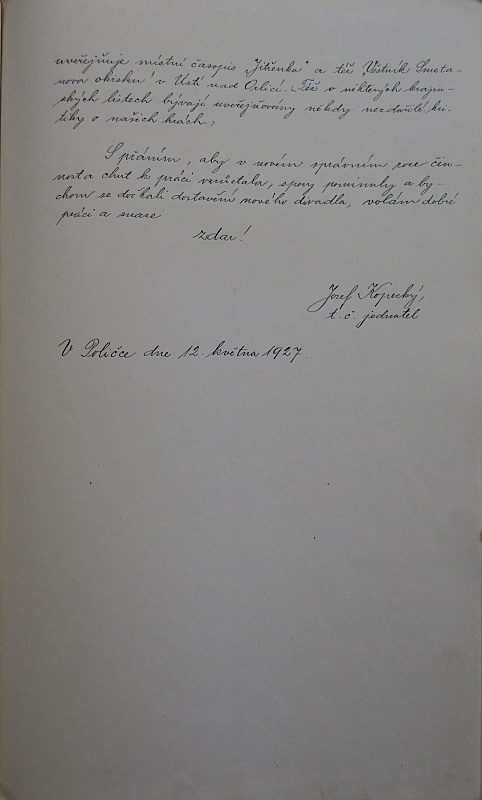 uveřejňuje místní časopis „Jitřenka" a též „Věstník Smeta-
nova okrsku" v Ústí nad Orlicí. Též v některých krajin-
ských listech bývají uveřejňovány někdy nezdařilé kri-
tiky o našich hrách.
S přáním, aby v novém správním roce čin-
nost a chuť k práci vzrůstala, spory pominuly a by-
chom se dočkali dostavění nového divadla, volám dobré
práci a snaze
zdar!
Josef Kopecký,
t. č. jednatel
V Poličce dne 12. května 1927.